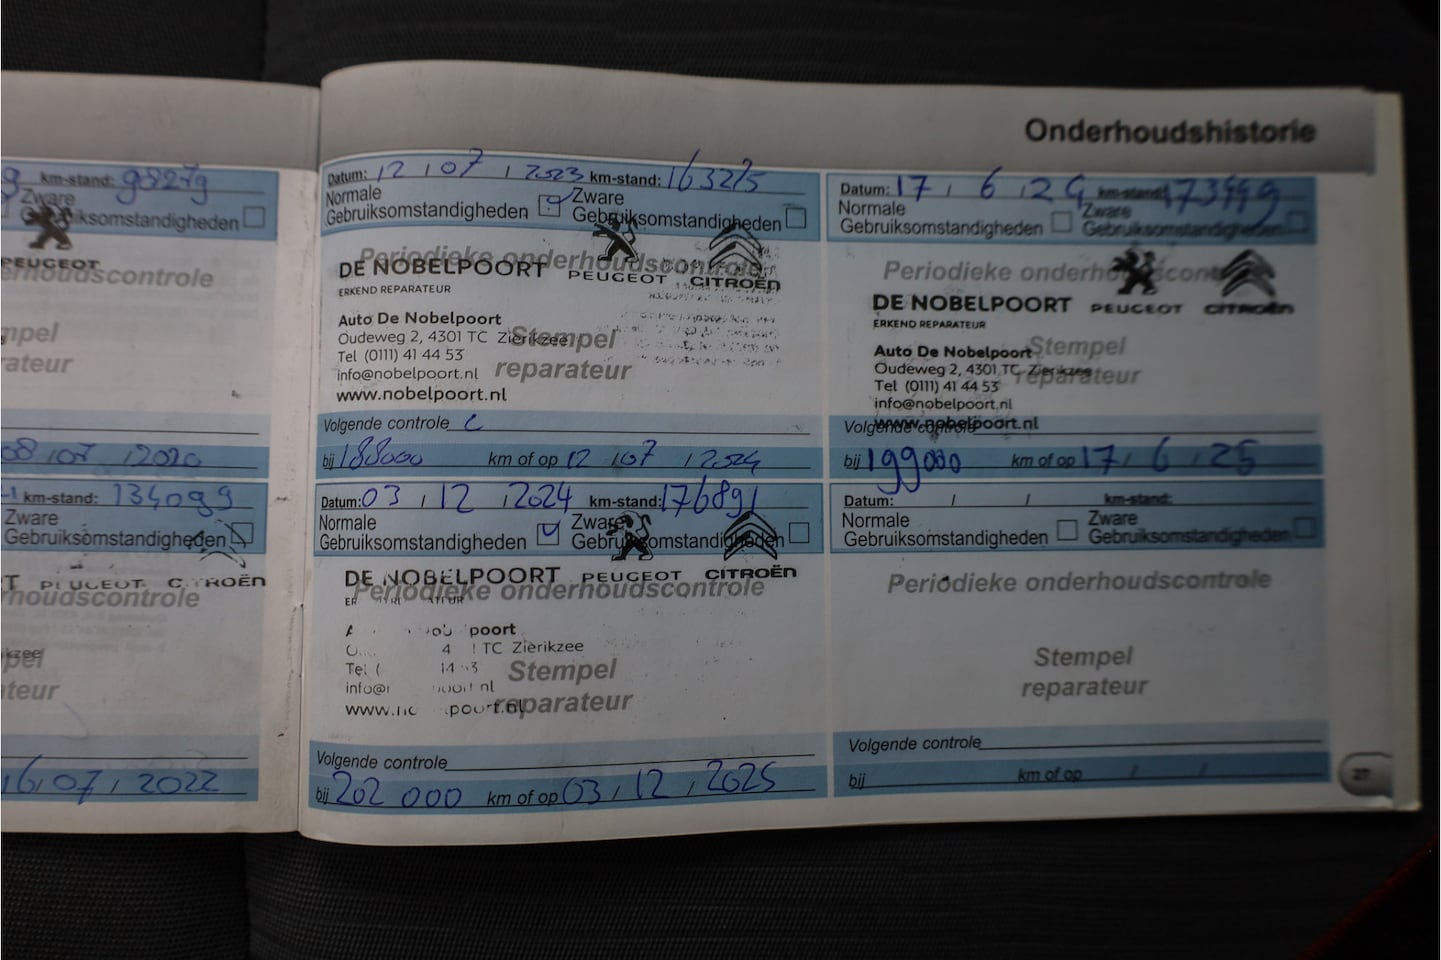 Onderhoudshistorie
km-stand: 98279
Zware
Gebruiksomstandigheden
PEUGEOT
08 / 07 / 2020
km-stand: 134099
Zware
Gebruiksomstandigheden
PEUGEOT CITROËN
16 / 07 / 2022
Datum: 12 / 07 / 2023 km-stand: 163215
Normale
Gebruiksomstandigheden
Zware
Gebruiksomstandigheden
Periodieke onderhoudscontrole
DE NOBELPOORT PEUGEOT CITROËN
ERKEND REPARATEUR
Auto De Nobelpoort
Oudeweg 2, 4301 TC Zierikzee
Tel (0111) 41 44 53
info@nobelpoort.nl
www.nobelpoort.nl
Stempel
reparateur
Volgende controle
bij 188000 km of op 12 / 07 / 2024
Datum: 17 / 6 / 24 km-stand:
Normale
Gebruiksomstandigheden
Zware
Gebruiksomstandigheden
Periodieke onderhoudscontrole
DE NOBELPOORT PEUGEOT CITROËN
ERKEND REPARATEUR
Auto De Nobelpoort
Oudeweg 2, 4301 TC Zierikzee
Tel (0111) 41 44 53
info@nobelpoort.nl
www.nobelpoort.nl
Stempel
reparateur
Volgende controle
bij 199000 km of op 17 / 6 / 25
Datum: 03 / 12 / 2024 km-stand: 176891
Normale
Gebruiksomstandigheden
Zware
Gebruiksomstandigheden
DE NOBELPOORT PEUGEOT CITROËN
Periodieke onderhoudscontrole
TC Zierikzee
Stempel
reparateur
Volgende controle
bij 202 000 km of op 03 / 12 / 2025
Datum: / / km-stand:
Normale
Gebruiksomstandigheden
Zware
Gebruiksomstandigheden
Periodieke onderhoudscontrole
Stempel
reparateur
Volgende controle
bij km of op / /
27